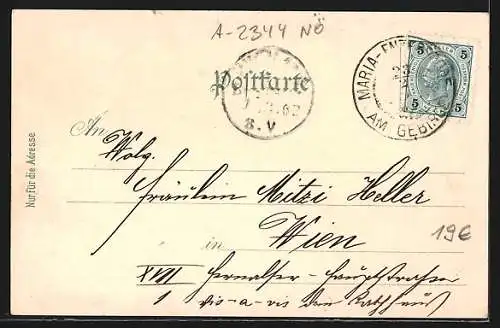 A-2344 NÖ
MARIA-ENZERSDORF
AM GEBIRGE
5 5
5 5
Postkarte
8.V
An
Wolg.
Fräulein Mitzi Heller
in Wien
XVII Hernalser-Hauptstrasse
1 vis-a-vis dem Rathaus
19€
Nur für die Adresse